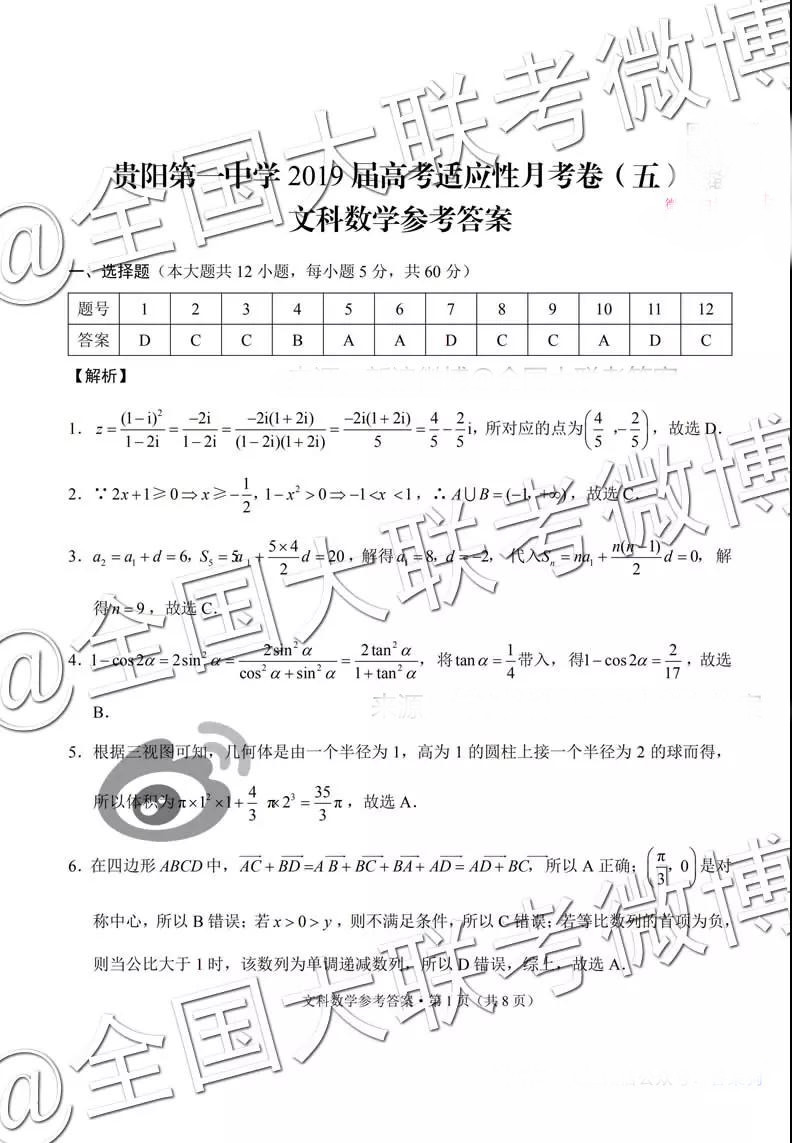 贵阳第一中学 2019 届高考适应性月考卷（五）
文科数学参考答案
一、选择题（本大题共 12 小题，每小题 5 分，共 60 分）
题号 1 2 3 4 5 6 7 8 9 10 11 12
答案 D C C B A A D C C A D C
【解析】
1．z=(1-i)²/(1-2i)=-2i/(1-2i)=-2i(1+2i)/((1-2i)(1+2i))=-2i(1+2i)/5=4/5-2/5 i，所对应的点为(4/5，-2/5)，故选 D．
2．∵2x+1≥0⇒x≥-1/2，1-x²>0⇒-1<x<1，∴A∪B=(-1，+∞)，故选 C．
3．a₂=a₁+d=6，S₅=5a₁+(5×4)/2 d=20，解得a₁=8，d=-2，代入Sₙ=na₁+n(n-1)/2 d=0，解
得n=9，故选 C．
4．1-cos2α=2sin²α=2sin²α/(cos²α+sin²α)=2tan²α/(1+tan²α)，将tanα=1/4带入，得1-cos2α=2/17，故选
B．
5．根据三视图可知，几何体是由一个半径为 1，高为 1 的圆柱上接一个半径为 2 的球而得，
所以体积为π×1²×1+4/3 π×2³=35/3 π，故选 A．
6．在四边形 ABCD 中，AC+BD=AB+BC+BA+AD=AD+BC，所以 A 正确；(π/3，0)是对
称中心，所以 B 错误；若x>0>y，则不满足条件，所以 C 错误；若等比数列的首项为负，
则当公比大于 1 时，该数列为单调递减数列，所以 D 错误，综上，故选 A．
文科数学参考答案·第 1 页（共 8 页）
@全国大联考微博
@全国大联考微博
@全国大联考微博